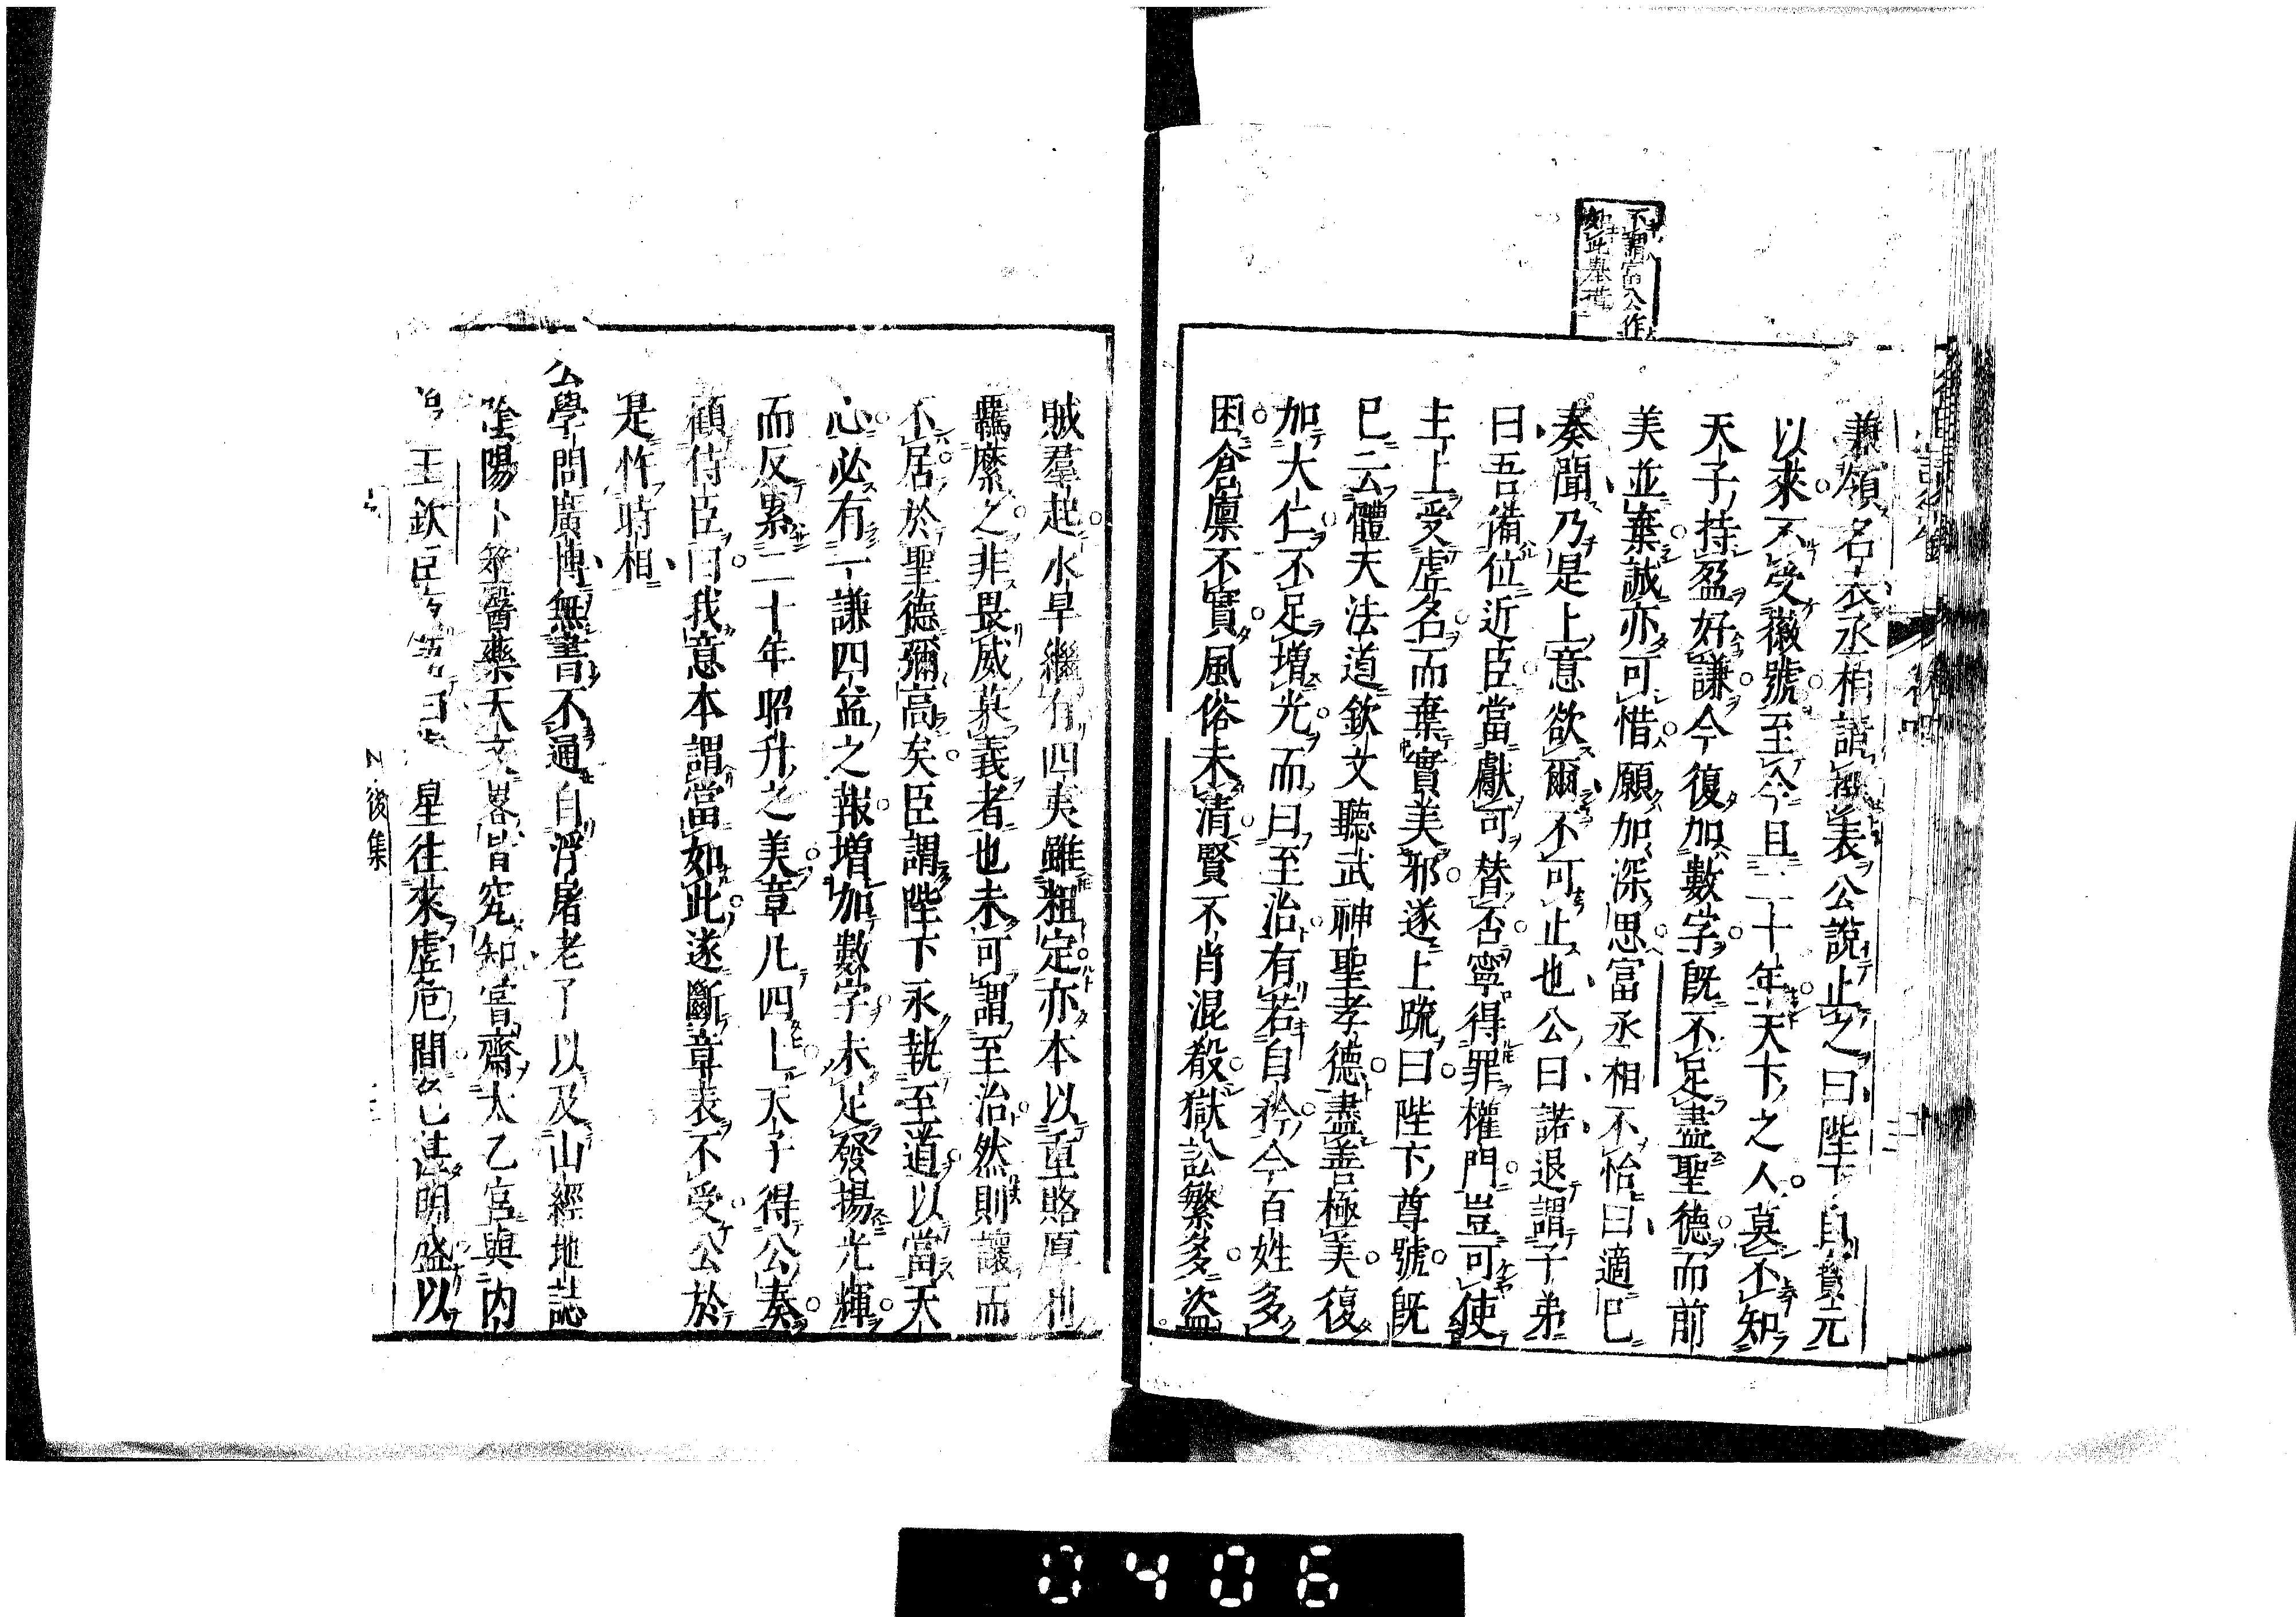 不謂富公作
如此舉措
兼領名表丞相請撰表公說止之曰陛下自貶元
以來不受徽號至今且二十年天下之人莫不知
天子持盈好謙今復加數字既不足盡聖德而前
美並棄誠亦可惜願加深思富丞相不怡曰適已
奏聞乃是上意欲爾不可止也公曰諾退謂子弟
曰吾備位近臣當獻可替否寧得罪權門豈可使
主上受虛名而棄實美邪遂上疏曰陛下尊號既
已云體天法道欽文聰武神聖孝德盡善極美復
加大仁不足增光而曰至治有若自矜今百姓多
困倉廩不實風俗未清賢不肖混殽獄訟繁多盜
賊羣起水旱繼有四夷雖粗定亦本以重賂厚利
羈縻之非畏威慕義者也未可謂至治然則讓而
不居於聖德彌高矣臣謂陛下永執至道以當天
心必有一謙四益之報增加數字未足發揚光輝
而反累二十年昭升之美章凡四上天子得公奏
顧侍臣曰我意本謂當如此遂斷章表不受公於
是忤時相
公學問廣博無書不通自浮屠老子以及山經地誌
陰陽卜筮醫藥天文畧皆究知嘗齋太乙宮與內
王欽臣
星往來虛危間色甚明盛以
後集
0406